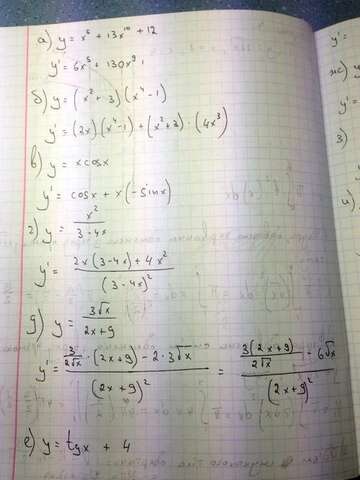 а) y = x⁶ + 13x¹⁰ + 12
y' = 6x⁵ + 130x⁹
б) y = (x² + 3)(x⁴ - 1)
y' = (2x)(x⁴ - 1) + (x² + 3) · (4x³)
в) y = x cos x
y' = cos x + x(- sin x)
г) y = x² / (3 - 4x)
y' = (2x(3 - 4x) + 4x²) / (3 - 4x)²
д) y = 3√x / (2x + 9)
y' = (3/(2√x) · (2x + 9) - 2 · 3√x) / (2x + 9)² = (3(2x + 9)/(2√x) - 6√x) / (2x + 9)²
е) y = tg x + 4
y' =
y'
з)